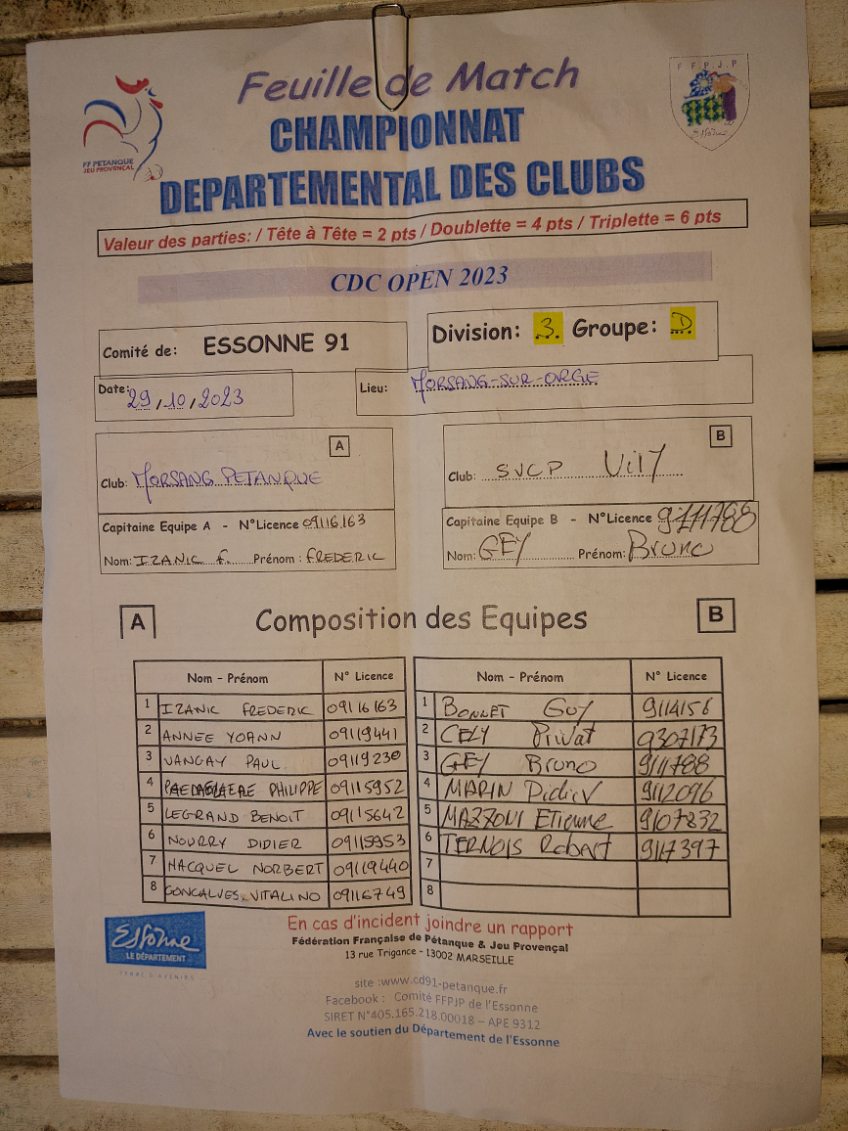 Feuille de Match
FFPJP
Essonne
FF PETANQUE
JEU PROVENÇAL
CHAMPIONNAT
DEPARTEMENTAL DES CLUBS
Valeur des parties: / Tête à Tête = 2 pts / Doublette = 4 pts / Triplette = 6 pts
CDC OPEN 2023
Comité de: ESSONNE 91
Division: 3 Groupe: D
Date: 29/10/2023
Lieu: MORSANG-SUR-ORGE
A
Club: MORSANG PETANQUE
Capitaine Equipe A - N°Licence 09116163
Nom: IZANIC f. Prénom: FREDERIC
B
Club: SVCP Vil7
Capitaine Equipe B - N°Licence 9111788
Nom: GEY Prénom: Bruno
A Composition des Equipes B
Nom - Prénom N° Licence
1 IZANIC FREDERIC 09116163
2 ANNEE YOANN 09119441
3 VANGAY PAUL 09119230
4 PHILIPPE 09115952
5 LEGRAND BENOIT 09115642
6 NOURRY DIDIER 09115953
7 HACQUEL NORBERT 09119440
8 GONCALVES VITALINO 09116749
Nom - Prénom N° Licence
1 BONNET Guy 9114156
2 CELY Privat 9307173
3 GEY Bruno 9111788
4 MARIN Didier 9112096
5 MAZZONI Etienne 9107832
6 TERNOIS Robert 9117397
7
8
Essonne
LE DÉPARTEMENT
TERRE D'AVENIRS
En cas d'incident joindre un rapport
Fédération Française de Pétanque & Jeu Provençal
13 rue Trigance - 13002 MARSEILLE
site :www.cd91-petanque.fr
Facebook : Comité FFPJP de l'Essonne
SIRET N°405.165.218.00018 – APE 9312
Avec le soutien du Département de l'Essonne